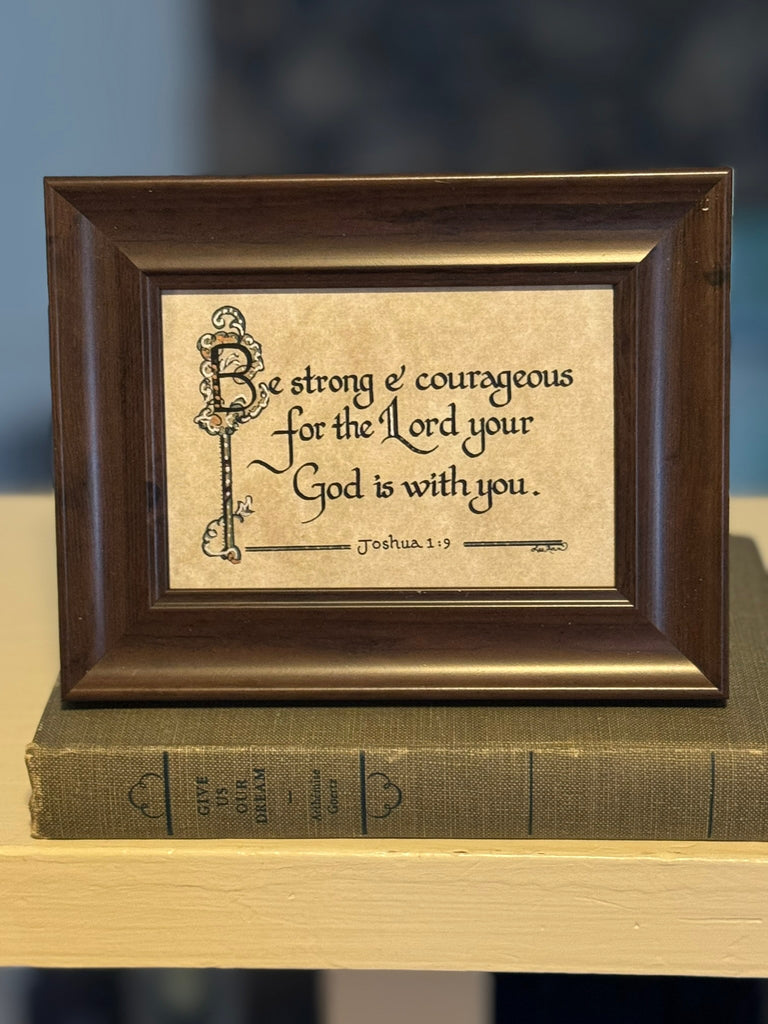 Be strong & courageous
for the Lord your
God is with you.
Joshua 1:9
GIVE
US
OUR
DREAM
—
Arthemise
Goertz